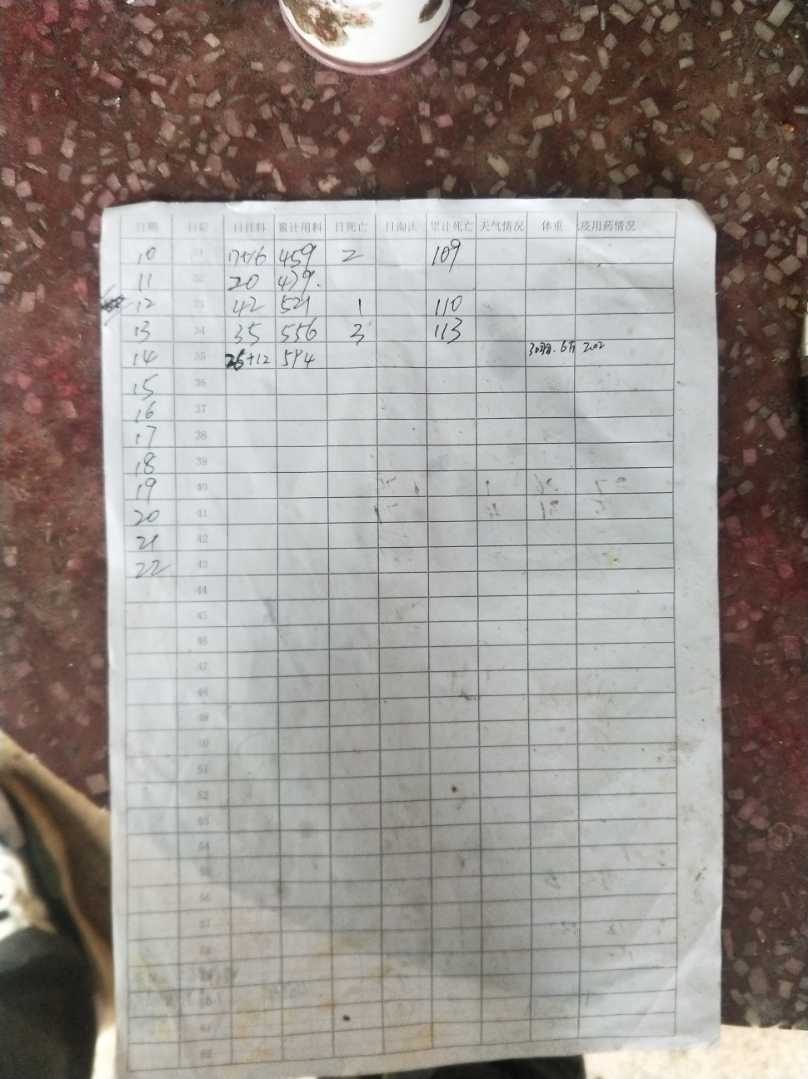 日期 日龄 日耗料 累计用料 日死亡 日淘汰 累计死亡 天气情况 体重 疫用药情况
10 31 459 2 109
11 32 20 479
12 33 42 521 1 110
13 34 35 556 3 113
14 35 26+12 594
15 36
16 37
17 38
18 39
19 40
20 41
21 42
22 43
44
45
46
47
48
49
50
51
52
53
54
55
56
57
58
59
60
61
62